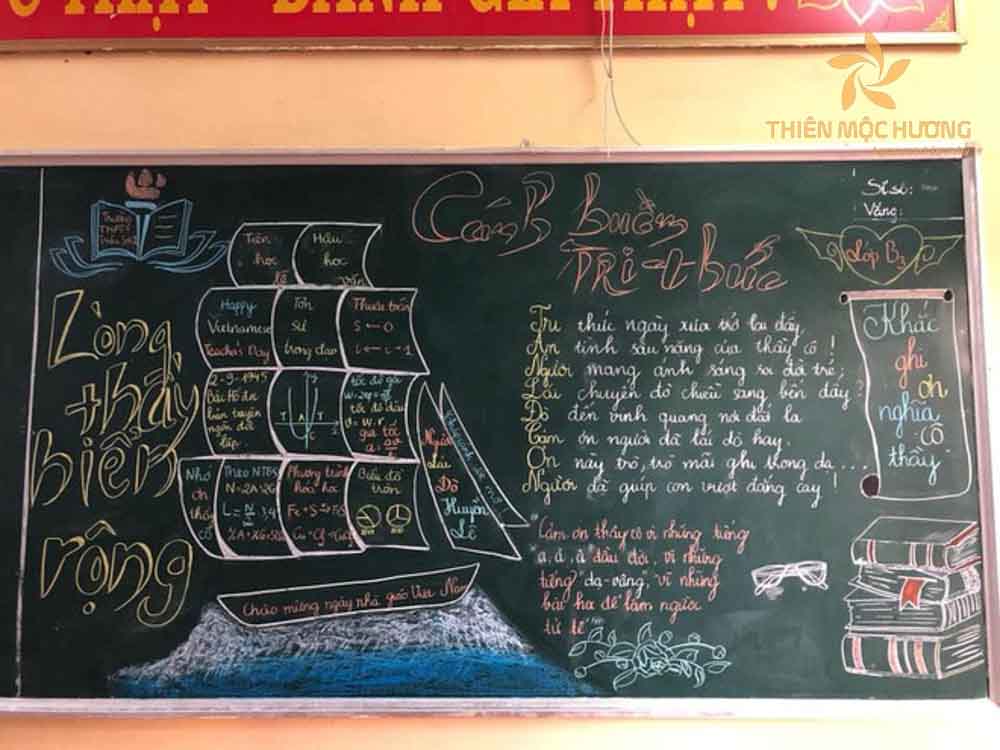 THIÊN MỘC HƯƠNG
Cánh Buồm
Tri thức
Sĩ số:
Vắng:
Lớp B3
Trường
THPT
Tiên
học
lễ
Hậu
học
văn
Happy
Vietnamese
Teacher's Day
Tôn
sư
trọng đạo
Thước trần
2-9-1945
Bác Hồ đọc
bản tuyên
ngôn độc
lập
tốc độ góc
tốc độ dài
v = w.r
gia tốc
Nhớ
ơn
thầy
cô
Theo NTBS
N=2A+2G
Phương trình
hóa học
Biểu đồ
tròn
Người
Lái
Đò
Huyền
Lòng
thầy
biển
rộng
Chào mừng ngày nhà giáo Việt Nam
Tri thức ngày xưa trở lại đây
Ân tình sâu nặng của thầy cô!
Người mang ánh sáng soi đời trẻ;
Lái chuyến đò chiều sang bến đây?
Đò đến vinh quang nơi đất lạ
Cảm ơn người đã lái đò hay.
Ơn này trò, trò mãi ghi trong dạ...
Người đã giúp con vượt đắng cay!
Khắc
ghi
ơn
nghĩa
cô
thầy
Cảm ơn thầy cô vì những tiếng
a, á, à đầu đời, vì những
tiếng dạ-vâng, vì những
bài học để làm người
tử tế